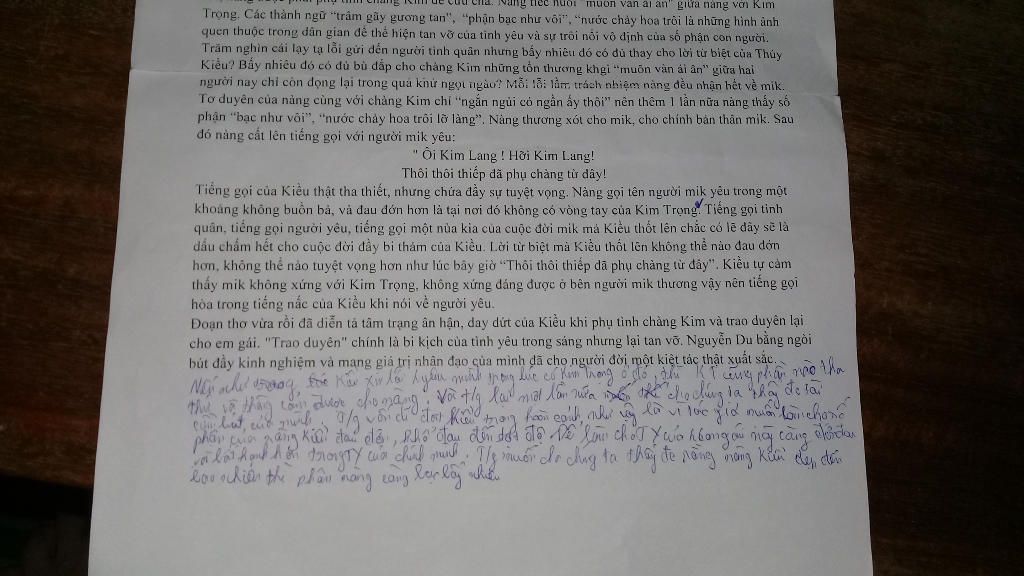 Trọng. Các thành ngữ "trâm gãy gương tan", "phận bạc như vôi", "nước chảy hoa trôi là những hình ảnh
quen thuộc trong dân gian để thể hiện tan vỡ của tình yêu và sự trôi nổi vô định của số phận con người.
Trăm nghìn cái lạy tạ lỗi gửi đến người tình quân nhưng bấy nhiêu đó có đủ thay cho lời từ biệt của Thúy
Kiều? Bấy nhiêu đó có đủ bù đắp cho chàng Kim những tổn thương khgi "muôn vàn ái ân" giữa hai
người nay chỉ còn đọng lại trong quá khứ ngọt ngào? Mỗi lỗi lầm trách nhiệm nàng đều nhận hết về mik.
Tơ duyên của nàng cùng với chàng Kim chỉ "ngắn ngủi có ngần ấy thôi" nên thêm 1 lần nữa nàng thấy số
phận "bạc như vôi", "nước chảy hoa trôi lỡ làng". Nàng thương xót cho mik, cho chính bản thân mik. Sau
đó nàng cất lên tiếng gọi với người mik yêu:
" Ôi Kim Lang ! Hỡi Kim Lang!
Thôi thôi thiếp đã phụ chàng từ đây!
Tiếng gọi của Kiều thật tha thiết, nhưng chứa đầy sự tuyệt vọng. Nàng gọi tên người mik yêu trong một
khoảng không buồn bã, và đau đớn hơn là tại nơi đó không có vòng tay của Kim Trọng. Tiếng gọi tình
quân, tiếng gọi người yêu, tiếng gọi một nửa kia của cuộc đời mik mà Kiều thốt lên chắc có lẽ đây sẽ là
dấu chấm hết cho cuộc đời đầy bi thảm của Kiều. Lời từ biệt mà Kiều thốt lên không thể nào đau đớn
hơn, không thể nào tuyệt vọng hơn như lúc bây giờ "Thôi thôi thiếp đã phụ chàng từ đây". Kiều tự cảm
thấy mik không xứng với Kim Trọng, không xứng đáng được ở bên người mik thương vậy nên tiếng gọi
hòa trong tiếng nấc của Kiều khi nói về người yêu.
Đoạn thơ vừa rồi đã diễn tả tâm trạng ân hận, day dứt của Kiều khi phụ tình chàng Kim và trao duyên lại
cho em gái. "Trao duyên" chính là bi kịch của tình yêu trong sáng nhưng lại tan vỡ. Nguyễn Du bằng ngòi
bút đầy kinh nghiệm và mang giá trị nhân đạo của mình đã cho người đời một kiệt tác thật xuất sắc.
như Kiều xin lỗi mình trong lúc có Kim Trọng ở đó, thì KT cũng phần nào tha
thứ và thông cảm được cho nàng. Với t/g lại một lần nữa cho chúng ta thấy đc tài
của mình. T/g vốn dĩ đặt Kiều trong hoàn cảnh như vậy là vì tác giả muốn làm cho số
phận của nàng Kiều đau đớn, khổ đau đến
và bất hạnh hơn trong TY của chính mình. T/g muốn cho chúng ta thấy đc rằng nàng Kiều đẹp đến
bao nhiêu thì phận nàng càng bạc bấy nhiêu